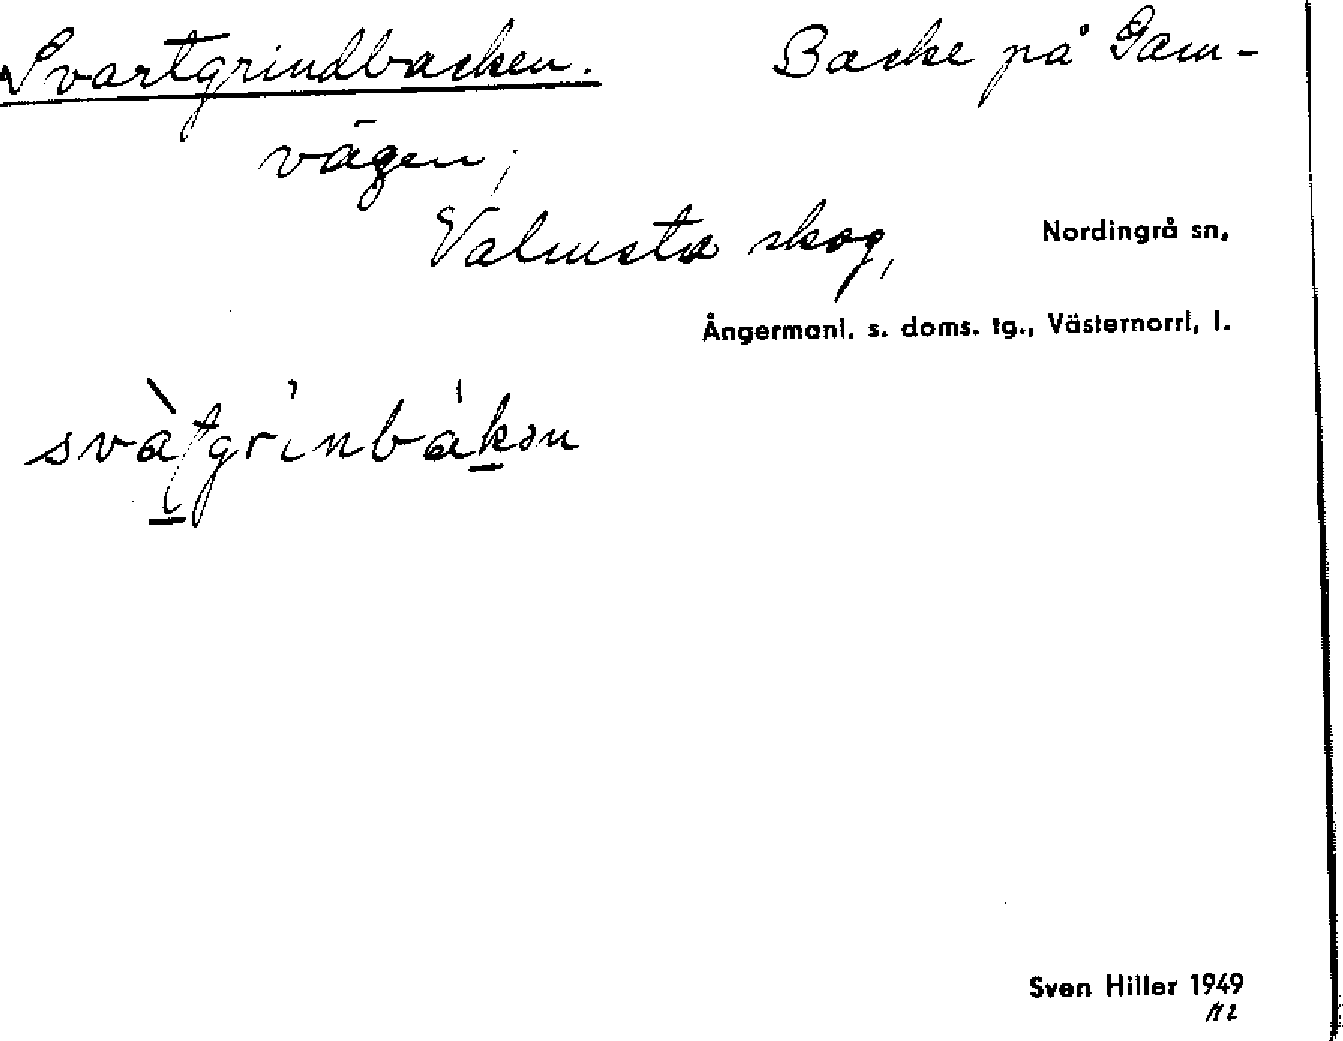 Svartgrindbacken. Backe på Gam-
vägen,
Valmsta skog, Nordingrå sn,
Ångermanl. s. doms. tg., Västernorrl. l.
Sven Hiller 1949